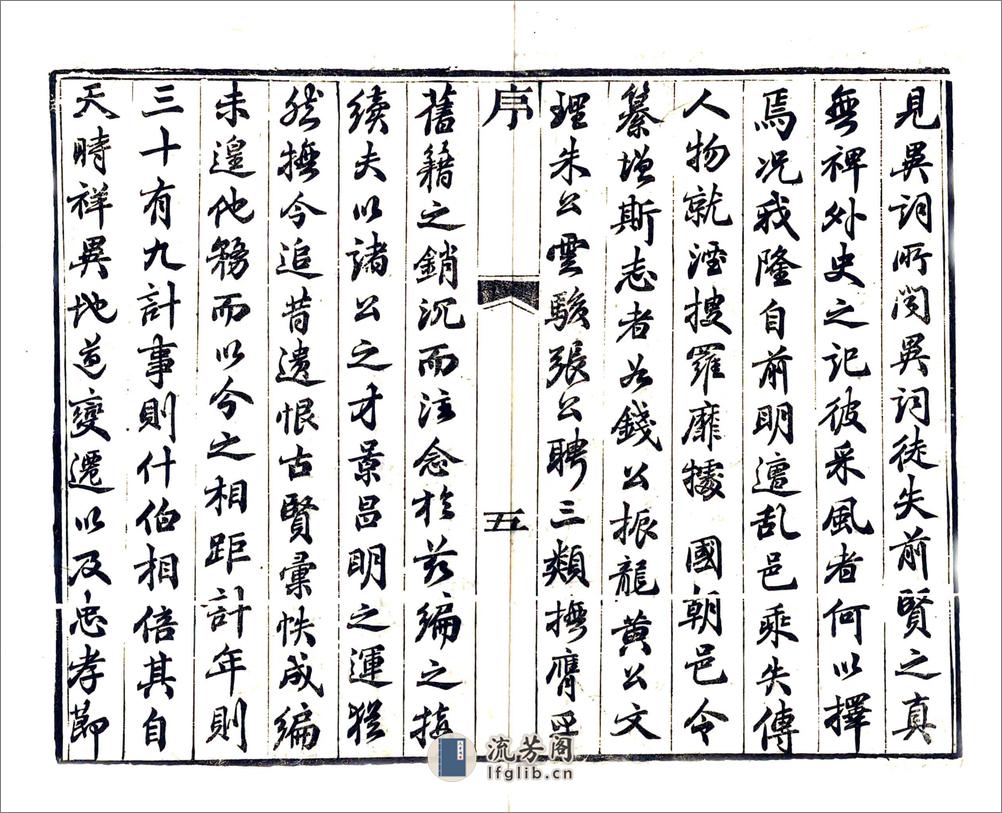 見異词所闻異词徒失前賢之真
無裨外史之记彼采風者何以擇
焉况我隆自前明遭乱邑乘失傳
人物就湮搜羅靡據 國朝邑令
纂增斯志者如錢公振龍黄公文
理朱公雲駿張公聘三類撫膺乎
序 五
舊籍之銷沉而注念於兹編之接
續夫以諸公之才景昌明之運猶
然撫今追昔遺恨古賢彙帙成編
未遑他務而以今之相距計年則
三十有九計事則什伯相倍其自
天時祥異地道變遷以及忠孝節
流芳阁
lfglib.cn